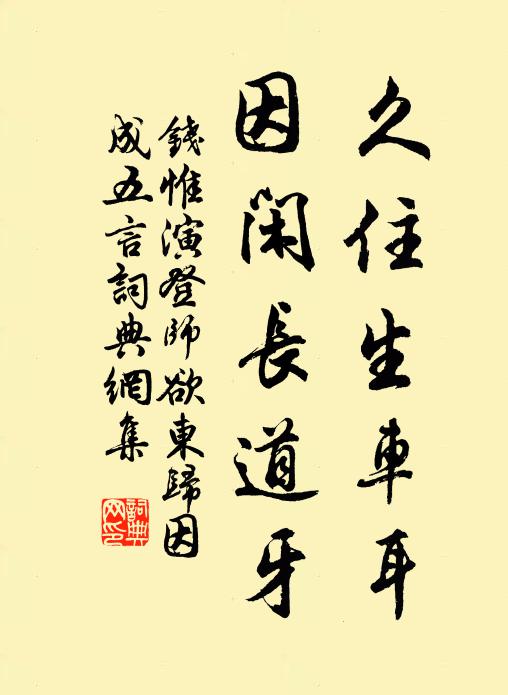 久住生車耳
因閑長道牙
錢惟演登師欲東歸因
成五言詞典網集
詞典网印